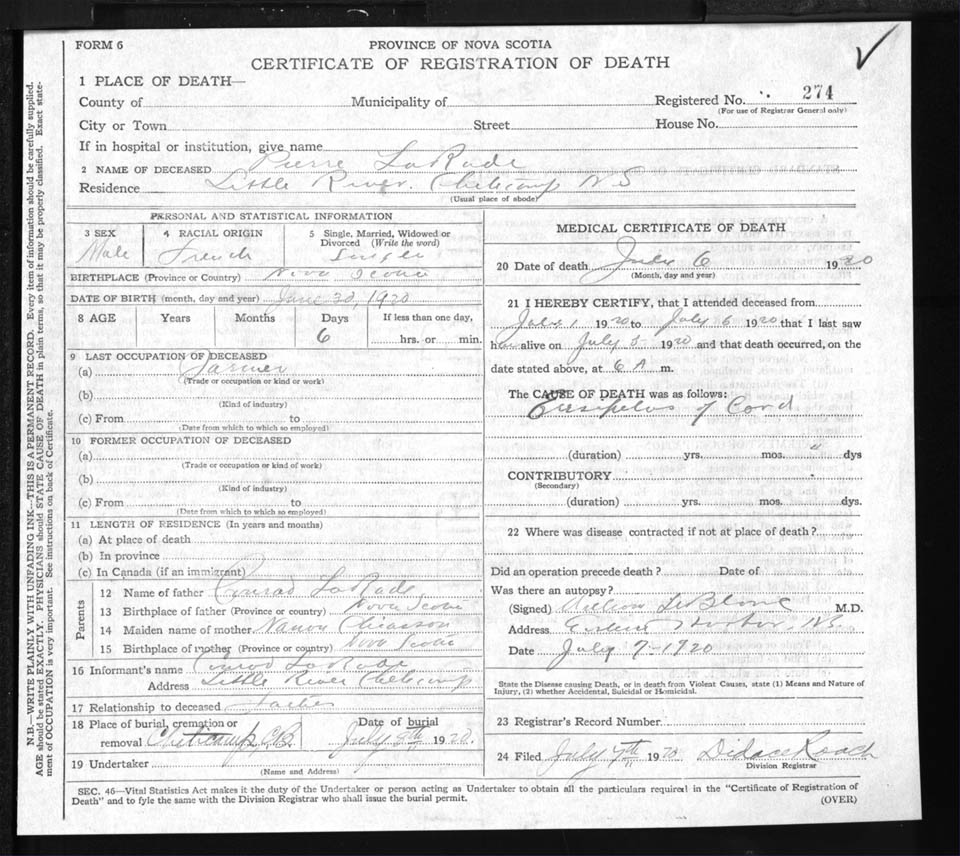 FORM 6
PROVINCE OF NOVA SCOTIA
CERTIFICATE OF REGISTRATION OF DEATH
1 PLACE OF DEATH—
County of Municipality of Registered No. 274
(For use of Registrar General only)
City or Town Street House No.
If in hospital or institution, give name
2 NAME OF DECEASED Pierre LaRade
Residence Little River, Cheticamp N.S
(Usual place of abode)
PERSONAL AND STATISTICAL INFORMATION
3 SEX 4 RACIAL ORIGIN 5 Single, Married, Widowed or
Divorced (Write the word)
Male French Single
BIRTHPLACE (Province or Country) Nova Scotia
DATE OF BIRTH (month, day and year) June 30, 1920
8 AGE Years Months Days If less than one day,
6 hrs. or min.
9 LAST OCCUPATION OF DECEASED
(a) Farmer
(Trade or occupation or kind or work)
(b)
(Kind of industry)
(c) From to
(Date from which to which so employed)
10 FORMER OCCUPATION OF DECEASED
(a)
(Trade or occupation or kind of work)
(b)
(Kind of industry)
(c) From to
(Date from which to which so employed)
11 LENGTH OF RESIDENCE (In years and months)
(a) At place of death
(b) In province
(c) In Canada (if an immigrant)
Parents
12 Name of father Conrad LaRade
13 Birthplace of father (Province or country) Nova Scotia
14 Maiden name of mother Chiasson
15 Birthplace of mother (Province or country) Nova Scotia
16 Informant's name Conrod LaRade
Address Little River Cheticamp
17 Relationship to deceased Father
18 Place of burial, cremation or Date of burial
removal Cheticamp C.B. July 8th 1920.
19 Undertaker
(Name and Address)
MEDICAL CERTIFICATE OF DEATH
20 Date of death July 6 1920
(Month, day and year)
21 I HEREBY CERTIFY, that I attended deceased from
July 1 1920 to July 6 1920 that I last saw
him alive on July 5 1920 and that death occurred, on the
date stated above, at 6 A m.
The CAUSE OF DEATH was as follows:
Erysipelas of Cord
(duration) yrs. mos. " dys
CONTRIBUTORY
(Secondary)
(duration) yrs. mos. dys.
22 Where was disease contracted if not at place of death?
Did an operation precede death? Date of
Was there an autopsy?
(Signed) LeBlanc M.D.
Address Harbor, N.S.
Date July 7-1920
State the Disease causing Death, or in death from Violent Causes, state (1) Means and Nature of
Injury, (2) whether Accidental, Suicidal or Homicidal.
23 Registrar's Record Number
24 Filed July 7th 1920 Didace Roach
Division Registrar
SEC. 46—Vital Statistics Act makes it the duty of the Undertaker or person acting as Undertaker to obtain all the particulars required in the "Certificate of Registration of
Death" and to fyle the same with the Division Registrar who shall issue the burial permit.
(OVER)
N.B.—WRITE PLAINLY WITH UNFADING INK—THIS IS A PERMANENT RECORD. Every item of information should be carefully supplied.
AGE should be stated EXACTLY. PHYSICIANS should STATE CAUSE OF DEATH in plain terms, so that it may be properly classified. Exact state-
ment of OCCUPATION is very important. See instructions on back of Certificate.